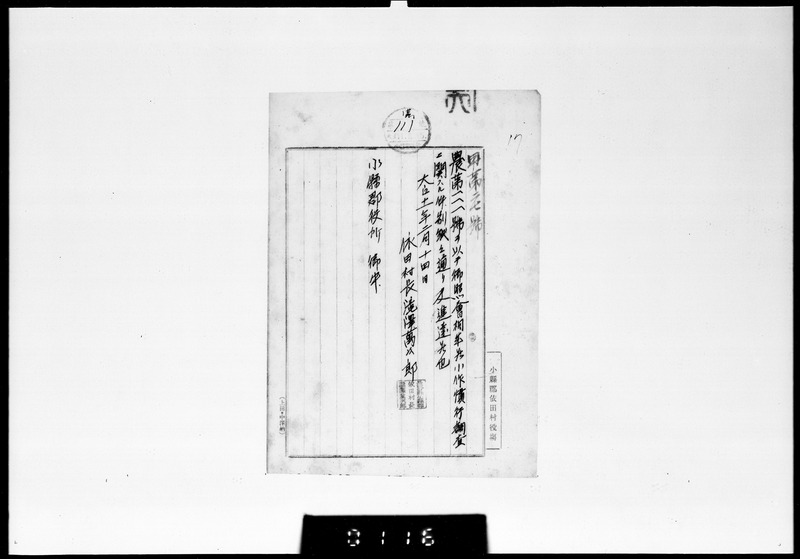 17
111
農第一一一號ヲ以テ御照會相成候小作慣行調査
ニ關スル件別紙之通リ及進達候也
大正十一年二月十四日
依田村長滝澤萬次郎
小縣郡役所 御中
小縣郡依田村役場
0116